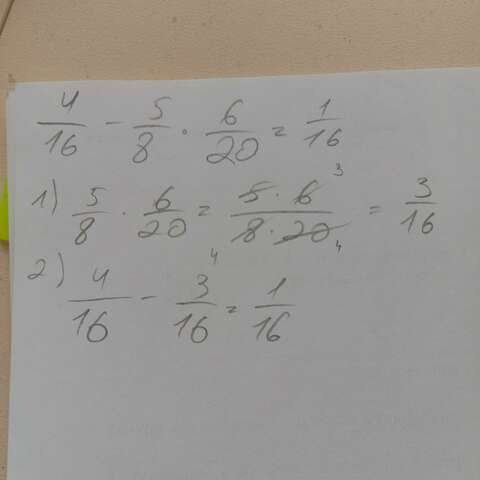 4/16 - 5/8 · 6/20 = 1/16
1) 5/8 · 6/20 = 5 · 6 3/8 · 20 4 = 3/16
2) 4/16 - 3/16 = 1/16